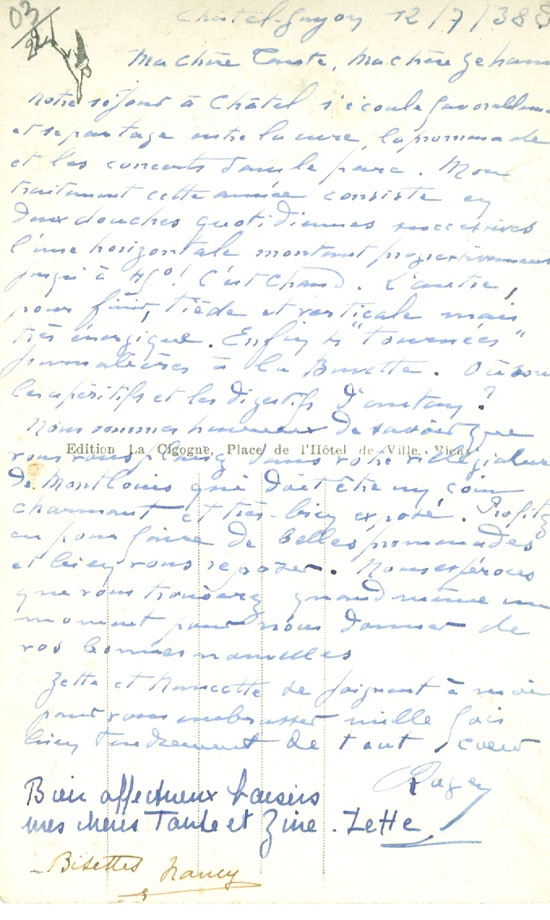 03
22
Châtel-Guyon 12/7/38
Ma chère Tante, Ma chère
Notre séjour à Châtel s'écoule favorablement
et se partage entre la cure, la promenade
et les concerts dans le parc. Mon
traitement cette année consiste en
deux douches quotidiennes successives
l'une horizontale montant progressivement
jusqu'à 45°! C'est chaud. L'autre,
pour finir, tiède et verticale mais
très énergique. Enfin 4 "tournées"
journalières à la Buvette. Où sont
les apéritifs et les digestifs d'antan?
Nous sommes heureux de savoir que
Edition La Cigogne, Place de l'Hôtel de Ville, Vichy
vous vous plaisez dans votre villégiature
de Montlouis qui doit être un coin
charmant et très bien exposé. Profitez
en pour faire de belles promenades
et bien vous reposer. Nous espérons
que vous trouverez quand même un
moment pour nous donner de
vos bonnes nouvelles
Zette et Nancette se joignent à moi
pour vous embrasser mille fois
bien tendrement de tout coeur
Roger
Bien affectueux baisers
mes chères Tante et Zine. Zette
Bisettes Nancy